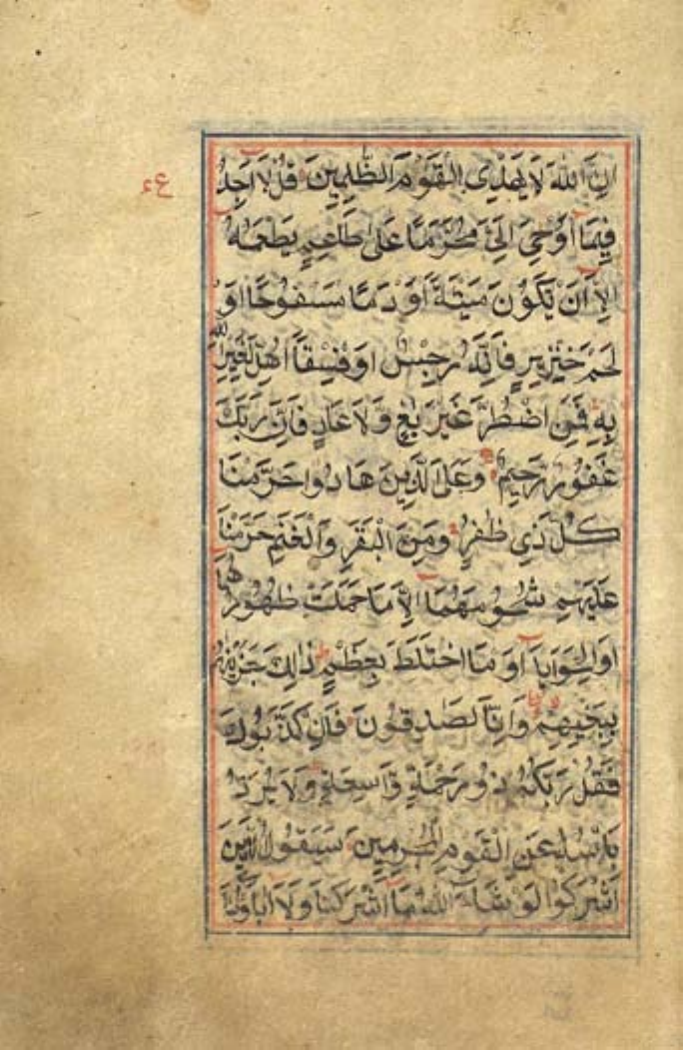 اِنَّ اللهَ لَا يَهْدِى الْقَوْمَ الظّٰلِمِينَ قُلْ لَا اَجِدُ
ع
فِيمَا اُوْحِيَ اِلَيَّ مُحَرَّمًا عَلٰى طَاعِمٍ يَطْعَمُهُ
اِلَّا اَنْ يَكُوْنَ مَيْتَةً اَوْ دَمًا مَسْفُوحًا اَوْ
لَحْمَ خِنْزِيرٍ فَاِنَّهُ رِجْسٌ اَوْ فِسْقًا اُهِلَّ لِغَيْرِ اللهِ
بِهِ فَمَنِ اضْطُرَّ غَيْرَ بَاغٍ وَلَا عَادٍ فَاِنَّ رَبَّكَ
غَفُورٌ رَحِيمٌ وَعَلَى الَّذِينَ هَادُوا حَرَّمْنَا
كُلَّ ذِي ظُفُرٍ وَمِنَ الْبَقَرِ وَالْغَنَمِ حَرَّمْنَا
عَلَيْهِمْ شُحُومَهُمَا اِلَّا مَا حَمَلَتْ ظُهُورُهُمَا
اَوِ الْحَوَايَا اَوْ مَا اخْتَلَطَ بِعَظْمٍ ذٰلِكَ جَزَيْنٰهُمْ
بِبَغْيِهِمْ وَاِنَّا لَصٰدِقُونَ فَاِنْ كَذَّبُوكَ
فَقُلْ رَبُّكُمْ ذُو رَحْمَةٍ وَاسِعَةٍ وَلَا يُرَدُّ
بَاْسُهُ عَنِ الْقَوْمِ الْمُجْرِمِينَ سَيَقُولُ الَّذِينَ
اَشْرَكُوا لَوْ شَاءَ اللهُ مَا اَشْرَكْنَا وَلَا اٰبَاؤُنَا